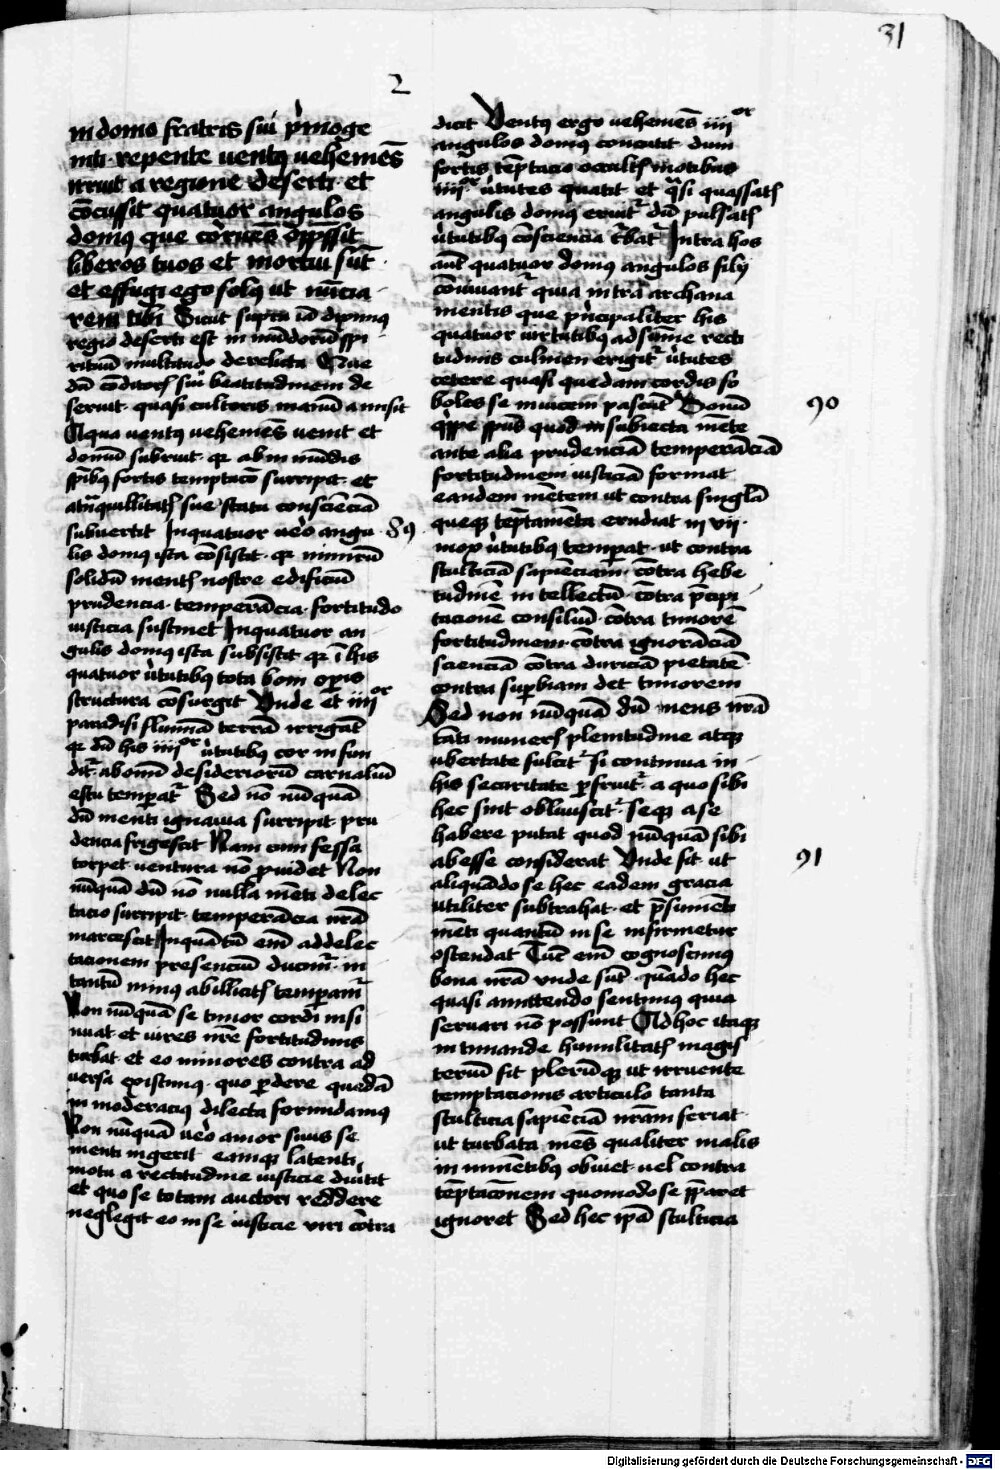 31
2
in domo fratris sui p̾moge
niti · repente ventꝰ vehemēs
irruit a regione deserti · et
cōcussit quatuor angulos
domꝰ que corruēs oppssit
liberos tuos et mortui sūt
et effugi ego solꝰ ut nūcia
rem tibi Sicut supra iā diximꝰ
regio deserti est inmūdorū spi
rituū multitudo derelicta Que
dū cōditorꝭ sui beatitudinem de
seruit · quasi cultoris manū amisit
A qua ventꝰ vehemēs venit et
domū subruit · qꝛ ab inmūdis
sp̄ibꝰ fortis temptacō surripit · et
a tnquillitatꝭ sue statu consciēciā
subuertit In quatuor u̾o angu
89
lis domꝰ ista cōsistit · qꝛ nimirū
solidū mentꝭ nostre edificiū
prudencia · temperācia · fortitudo
iusticia sustinet In quatuor an
gulis domꝰ ista subsistit qꝛ ī his
quatuor v̾tutibꝰ tota boni op̲is
structura cōsurgit Vnde et iiiiᵒʳ
paradisi flumīa terrā irrigāt
qꝛ dū his iiiiᵒʳ v̾tutibꝰ cor infun
dit᷑ ab omī desideriorū carnaliū
estu temperat᷑ Sed nō nūquā
dū menti ignauia surripit · pru
dencia frigescit Nam cum fessa
torpet · ventura nō p̱uidet Non
nūquā dū nō nulla mēti delec
tacio surripit · temperācia nr̄a
marcescit In quātū em̄ ad delec
tacionem presenciū ducim᷑ · in
tantū minꝰ ab illicitꝭ temperam᷑
Non nūquā se timor cordi insi
nuat · et vires nr̄e fortitudinis
turbat · et eo minores contra ad
versa existimꝰ · quo p̲dere quedā
inmoderaciꝰ dilecta formidamꝰ
Non nūquā u̾o amor suus se
menti ingerit eamqꝫ latenti
motu a rectitudine iusticie diu̾tit
et quo se totam auctori reddere
neglegit eo in se iusticie iuri cōtra
dicit Ventꝰ ergo vehemēs iiiiᵒʳ
angulos domꝰ concutit dum
fortis tēptacio occultꝭ motibus
iiiiᵒʳ v̾tutes quatit et q̄si quassatꝭ
angulis domꝰ eruit᷑ dū pulsatꝭ
v̾tutibꝰ cōsciencia t᷑bat᷑ Intra hos
aūt quatuor domꝰ angulos filij
cōuiuant᷑ quia intra archana
mentis que p̾ncipaliter his
quatuor virtutibꝰ ad sūme recti
tudinis culmen erigit᷑ v̾tutes
cetere quasi quedam cordis so
boles se inuicem pascūt Donū
90
q̾ppe sp̄us quod in subiecta mēte
ante alia prudenciā temperāciā
fortitudinem iusticiā format
eandem mētem ut contra singla
queqꝫ tēptamēta erudiat in vii ·
mox v̾tutibꝰ temperat · ut contra
stulticiā sapienciam · cōtra hebe
tudinē intellectū cōtra p̄cipi
tacionē consiliū · cōtra timorē
fortitudinem · cōtra ignorāciā
scienciā cōtra duriciā pietatē
contra superbiam det timorem
Sed non nūquā dū mens nr̄a
tāti munerꝭ plenitudine atqꝫ
ubertate fulcit᷑ si continua in
his securitate p̲fruit᷑ · a quo sibi
hec sint obliuiscit᷑ · seqꝫ a se
habere putat quod nūquā sibi
abesse considerat Vnde fit · ut
91
aliquādo se hec eadem gracia
utiliter subtrahat · et p̄sumēti
mēti quantū in se infirmetur
ostendat Tūc em̄ cognoscimꝰ
bona nr̄a vnde sūt · quādo hec
quasi amittendo sentimꝰ quia
seruari nō possunt Ad hoc itaqꝫ
intimande humilitatꝭ magis
teriū fit plerūqꝫ ut irruente
temptacionis articulo tanta
stulticia sapienciā nr̄am feriat ·
ut turbata mēs qualiter malis
imminētibꝰ obuiet · vel contra
tēptacōnem quomodo se pp̄aret
ignoret Sed hec ip̄a stulticia
Digitalisierung gefördert durch die Deutsche Forschungsgemeinschaft - DFG